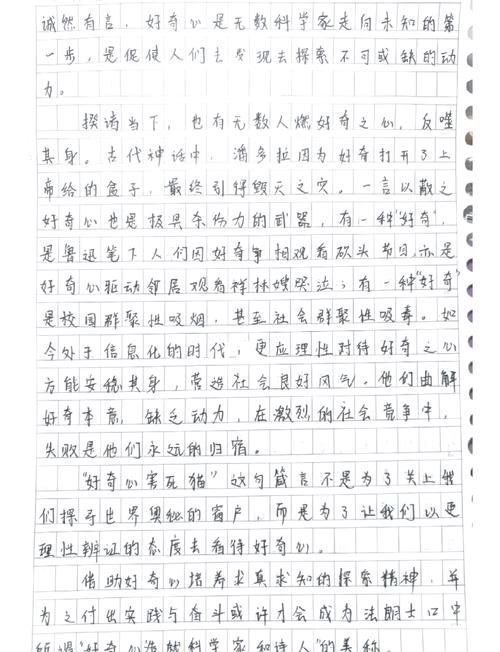 诚然有言，好奇心是无数科学家走向未知的第
一步，是促使人们去发现去探索不可或缺的动
力。
揆谪当下，也有无数人燃好奇之心，反噬
其身。古代神话中，潘多拉因为好奇打开了上
帝给的盒子，最终引得毁灭之灾。一言以蔽之
好奇心也是极具杀伤力的武器，有一种"好奇"，
是鲁迅笔下人们因好奇争相观看砍头节目，亦是
好奇心驱动邻居观看祥林嫂哭泣；有一种"好奇"
是校园群聚性吸烟，甚至社会群聚性吸毒。如
今处于信息化的时代，更应理性对待好奇之心
方能安稳其身，营造社会良好风气。他们曲解
好奇本意，缺乏动力，在激烈的社会竞争中，
失败是他们永远的归宿。
"好奇心害死猫"这句箴言不是为了关上我
们探寻世界奥秘的窗户，而是为了让我们以更
理性辨证的态度去看待好奇心。
借助好奇心培养求真求知的探索精神，并
为之付出实践与奋斗或许才会成为法朗士口中
所谓"好奇心造就科学家和诗人"的美称。